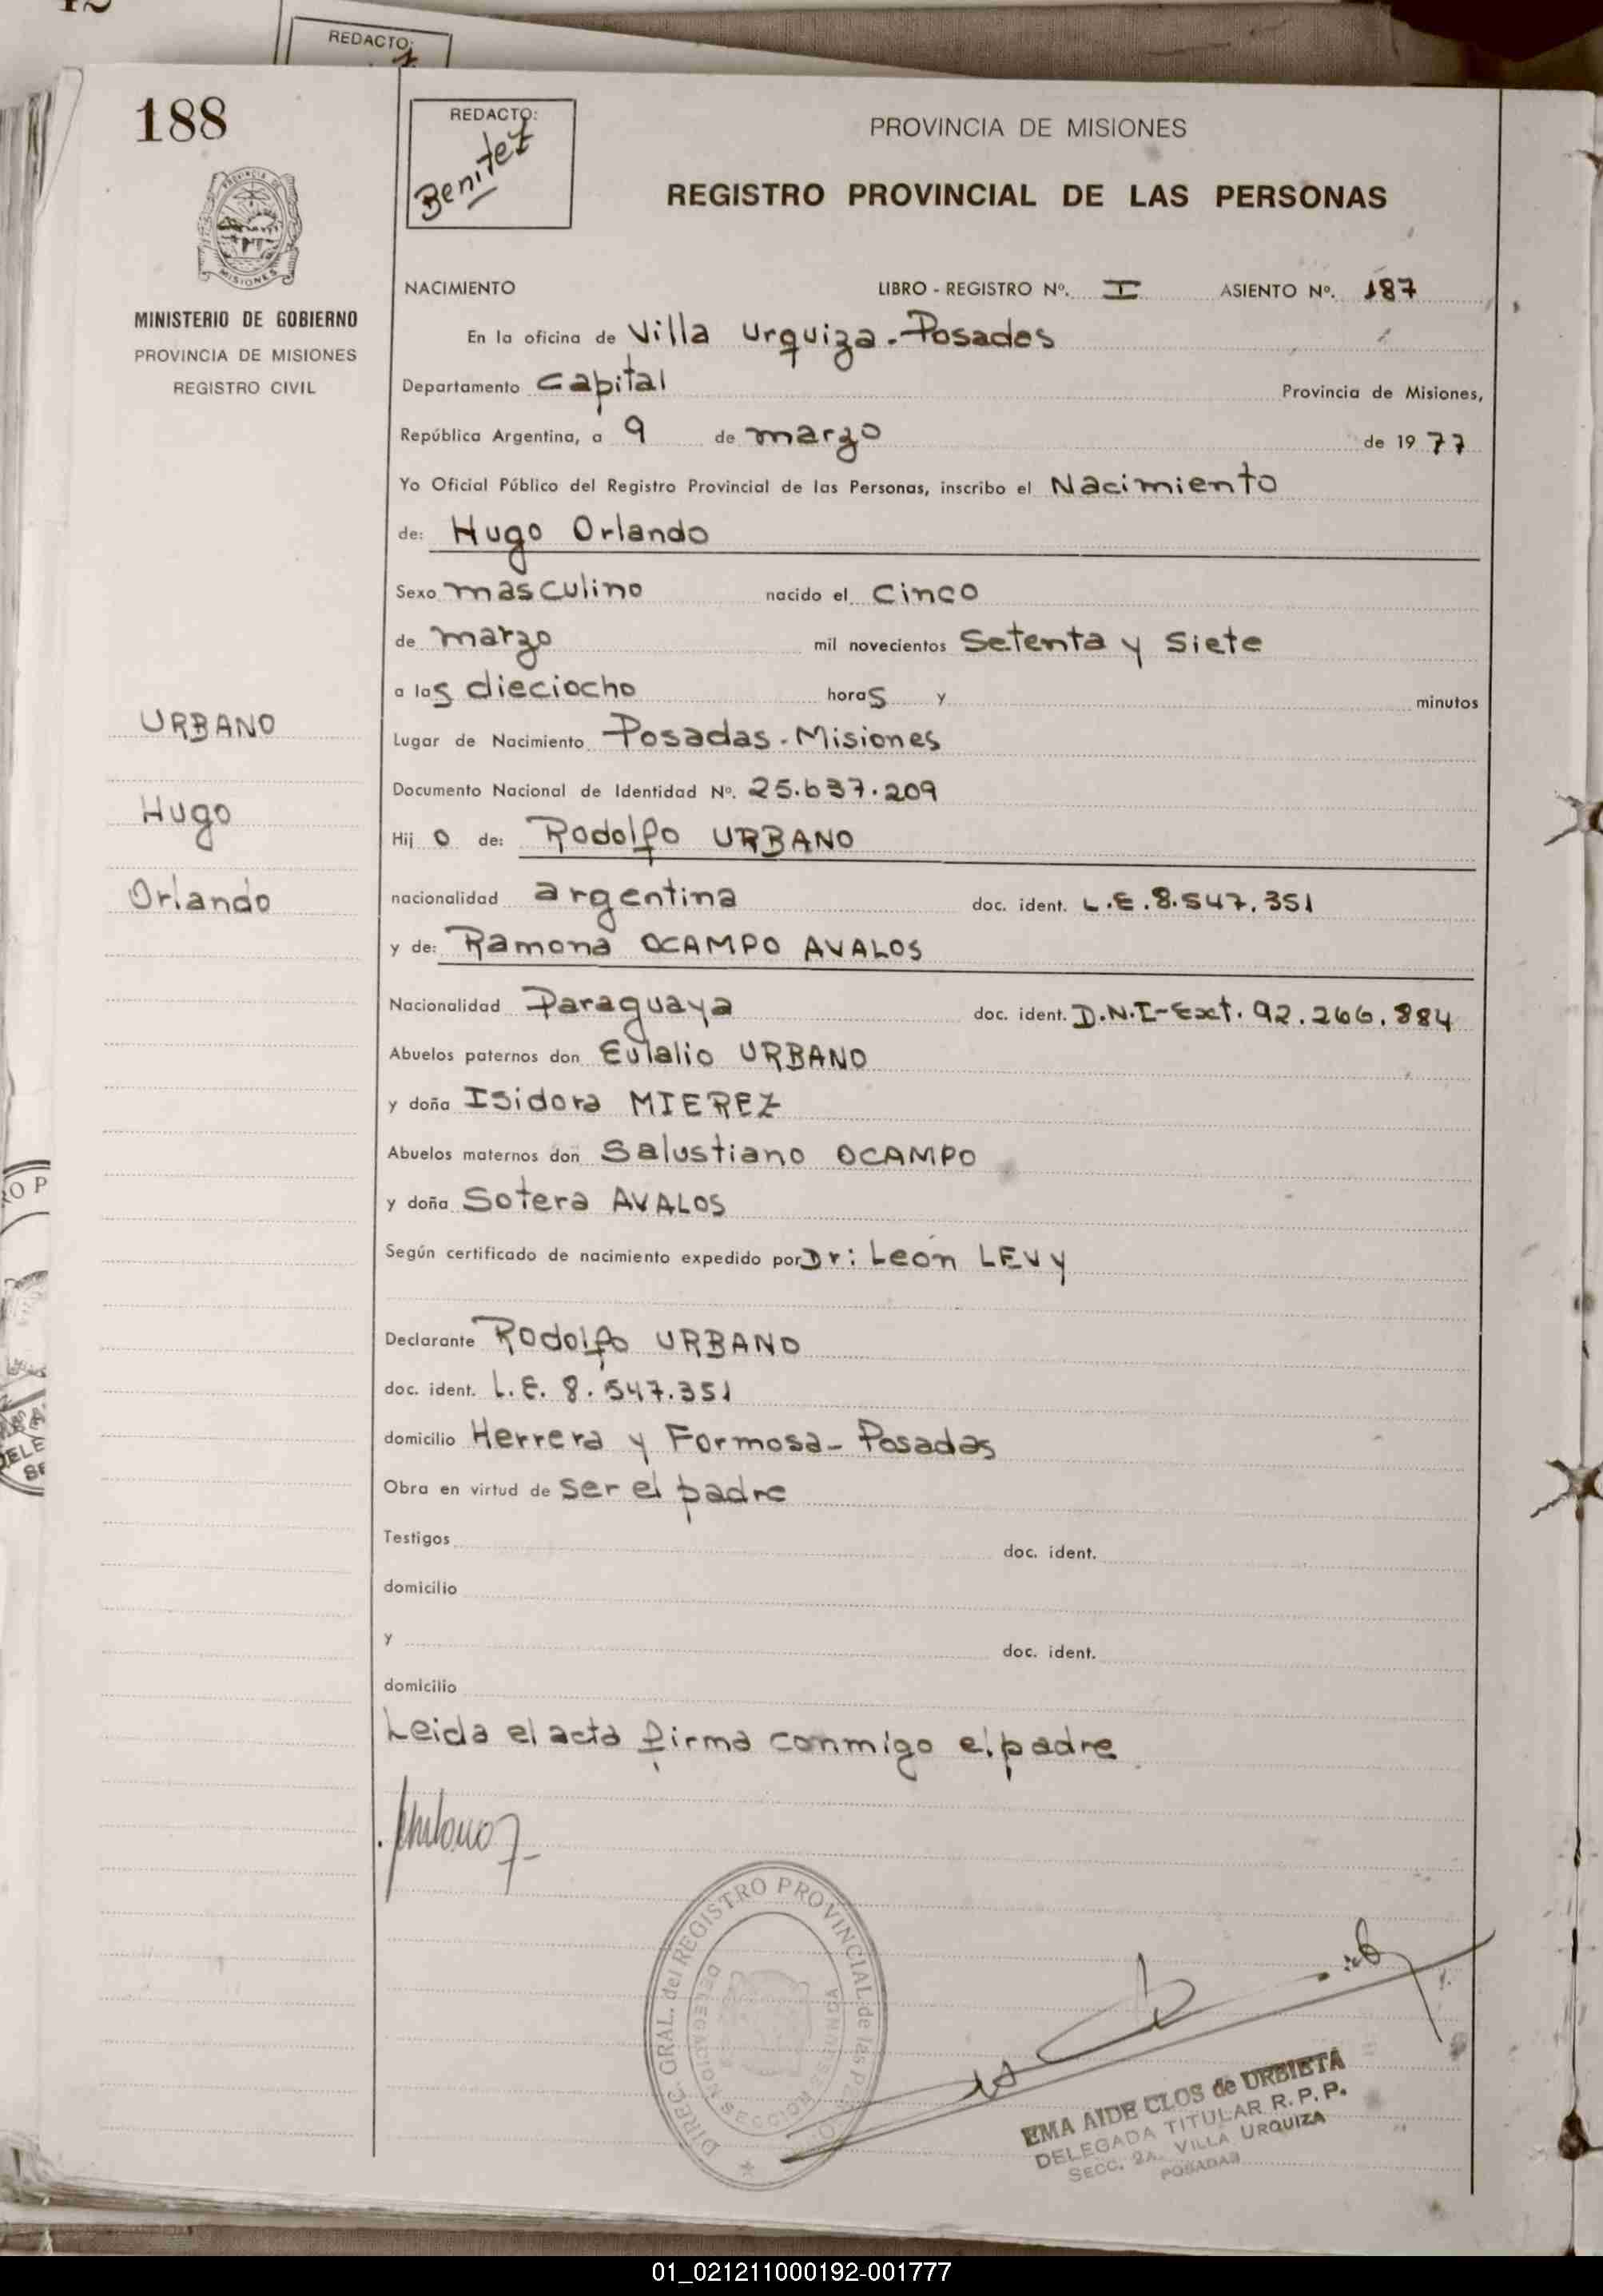 REDACTO:
188
REDACTO:
Benitez
PROVINCIA DE MISIONES
REGISTRO PROVINCIAL DE LAS PERSONAS
MISIONES
MINISTERIO DE GOBIERNO
PROVINCIA DE MISIONES
REGISTRO CIVIL
NACIMIENTO LIBRO - REGISTRO Nº. I ASIENTO Nº. 187
En la oficina de Villa Urquiza - Posadas
Departamento Capital Provincia de Misiones,
República Argentina, a 9 de marzo de 1977
Yo Oficial Público del Registro Provincial de las Personas, inscribo el Nacimiento
de: Hugo Orlando
Sexo masculino nacido el cinco
de marzo mil novecientos Setenta y Siete
a las dieciocho horas y minutos
URBANO
Lugar de Nacimiento Posadas - Misiones
Documento Nacional de Identidad Nº. 25.637.209
Hugo
Hijo de: Rodolfo URBANO
Orlando
nacionalidad argentina doc. ident. L.E. 8.547.351
y de: Ramona OCAMPO AVALOS
Nacionalidad Paraguaya doc. ident. D.N.I-Ext. 92.266.884
Abuelos paternos don Eulalio URBANO
y doña Isidora MIEREZ
Abuelos maternos don Salustiano OCAMPO
y doña Sotera AVALOS
Según certificado de nacimiento expedido por Dr: León LEVY
Declarante Rodolfo URBANO
doc. ident. L.E. 8.547.351
domicilio Herrera y Formosa - Posadas
Obra en virtud de ser el padre
Testigos doc. ident.
domicilio
y doc. ident.
domicilio
Leida el acta firma conmigo el padre
DIREC. GRAL. del REGISTRO PROVINCIAL de las
DELEGACION SECCION SEGUNDA
EMA AIDE CLOS de URBIETA
DELEGADA TITULAR R. P. P.
SECC. 2A. VILLA URQUIZA
POSADAS
01_021211000192-001777